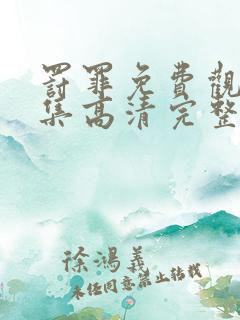 罰罪免費觀
集高清完整
徐鴻義
未經同意禁止轉載